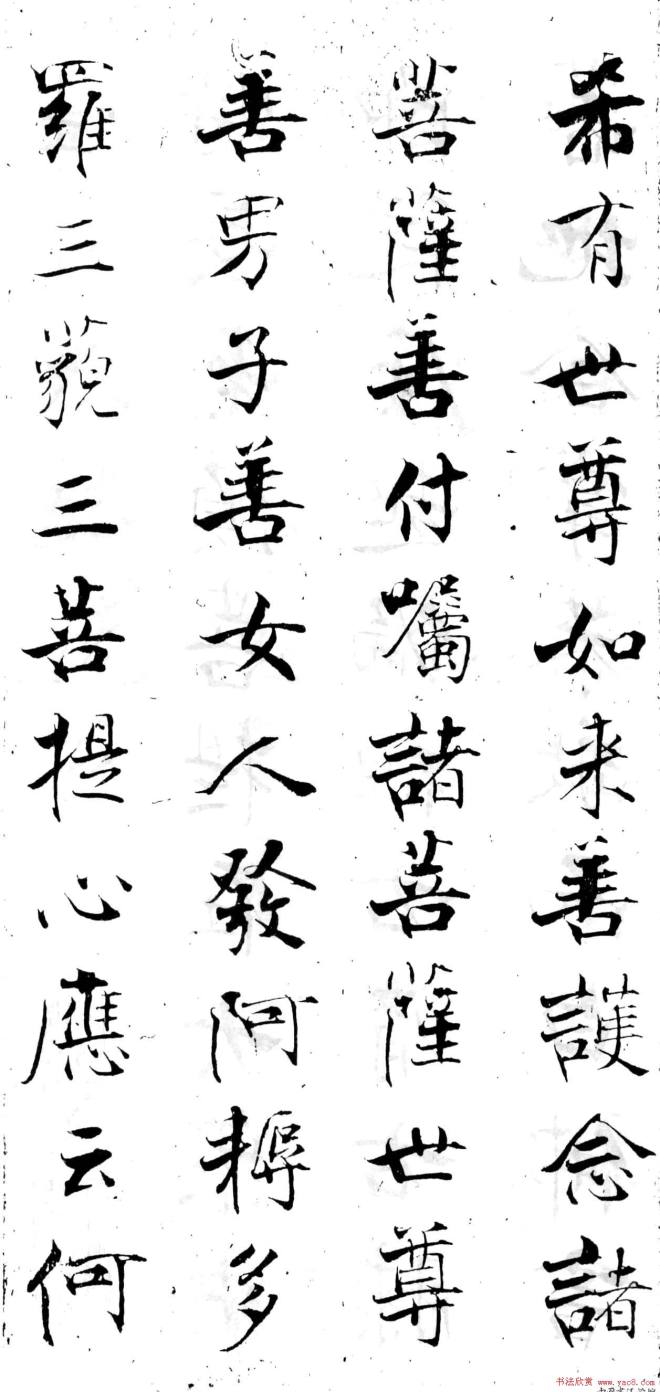 希有世尊如来善護念諸
菩薩善付囑諸菩薩世尊
善男子善女人發阿耨多
羅三藐三菩提心應云何
书法欣赏 www.yac8.com